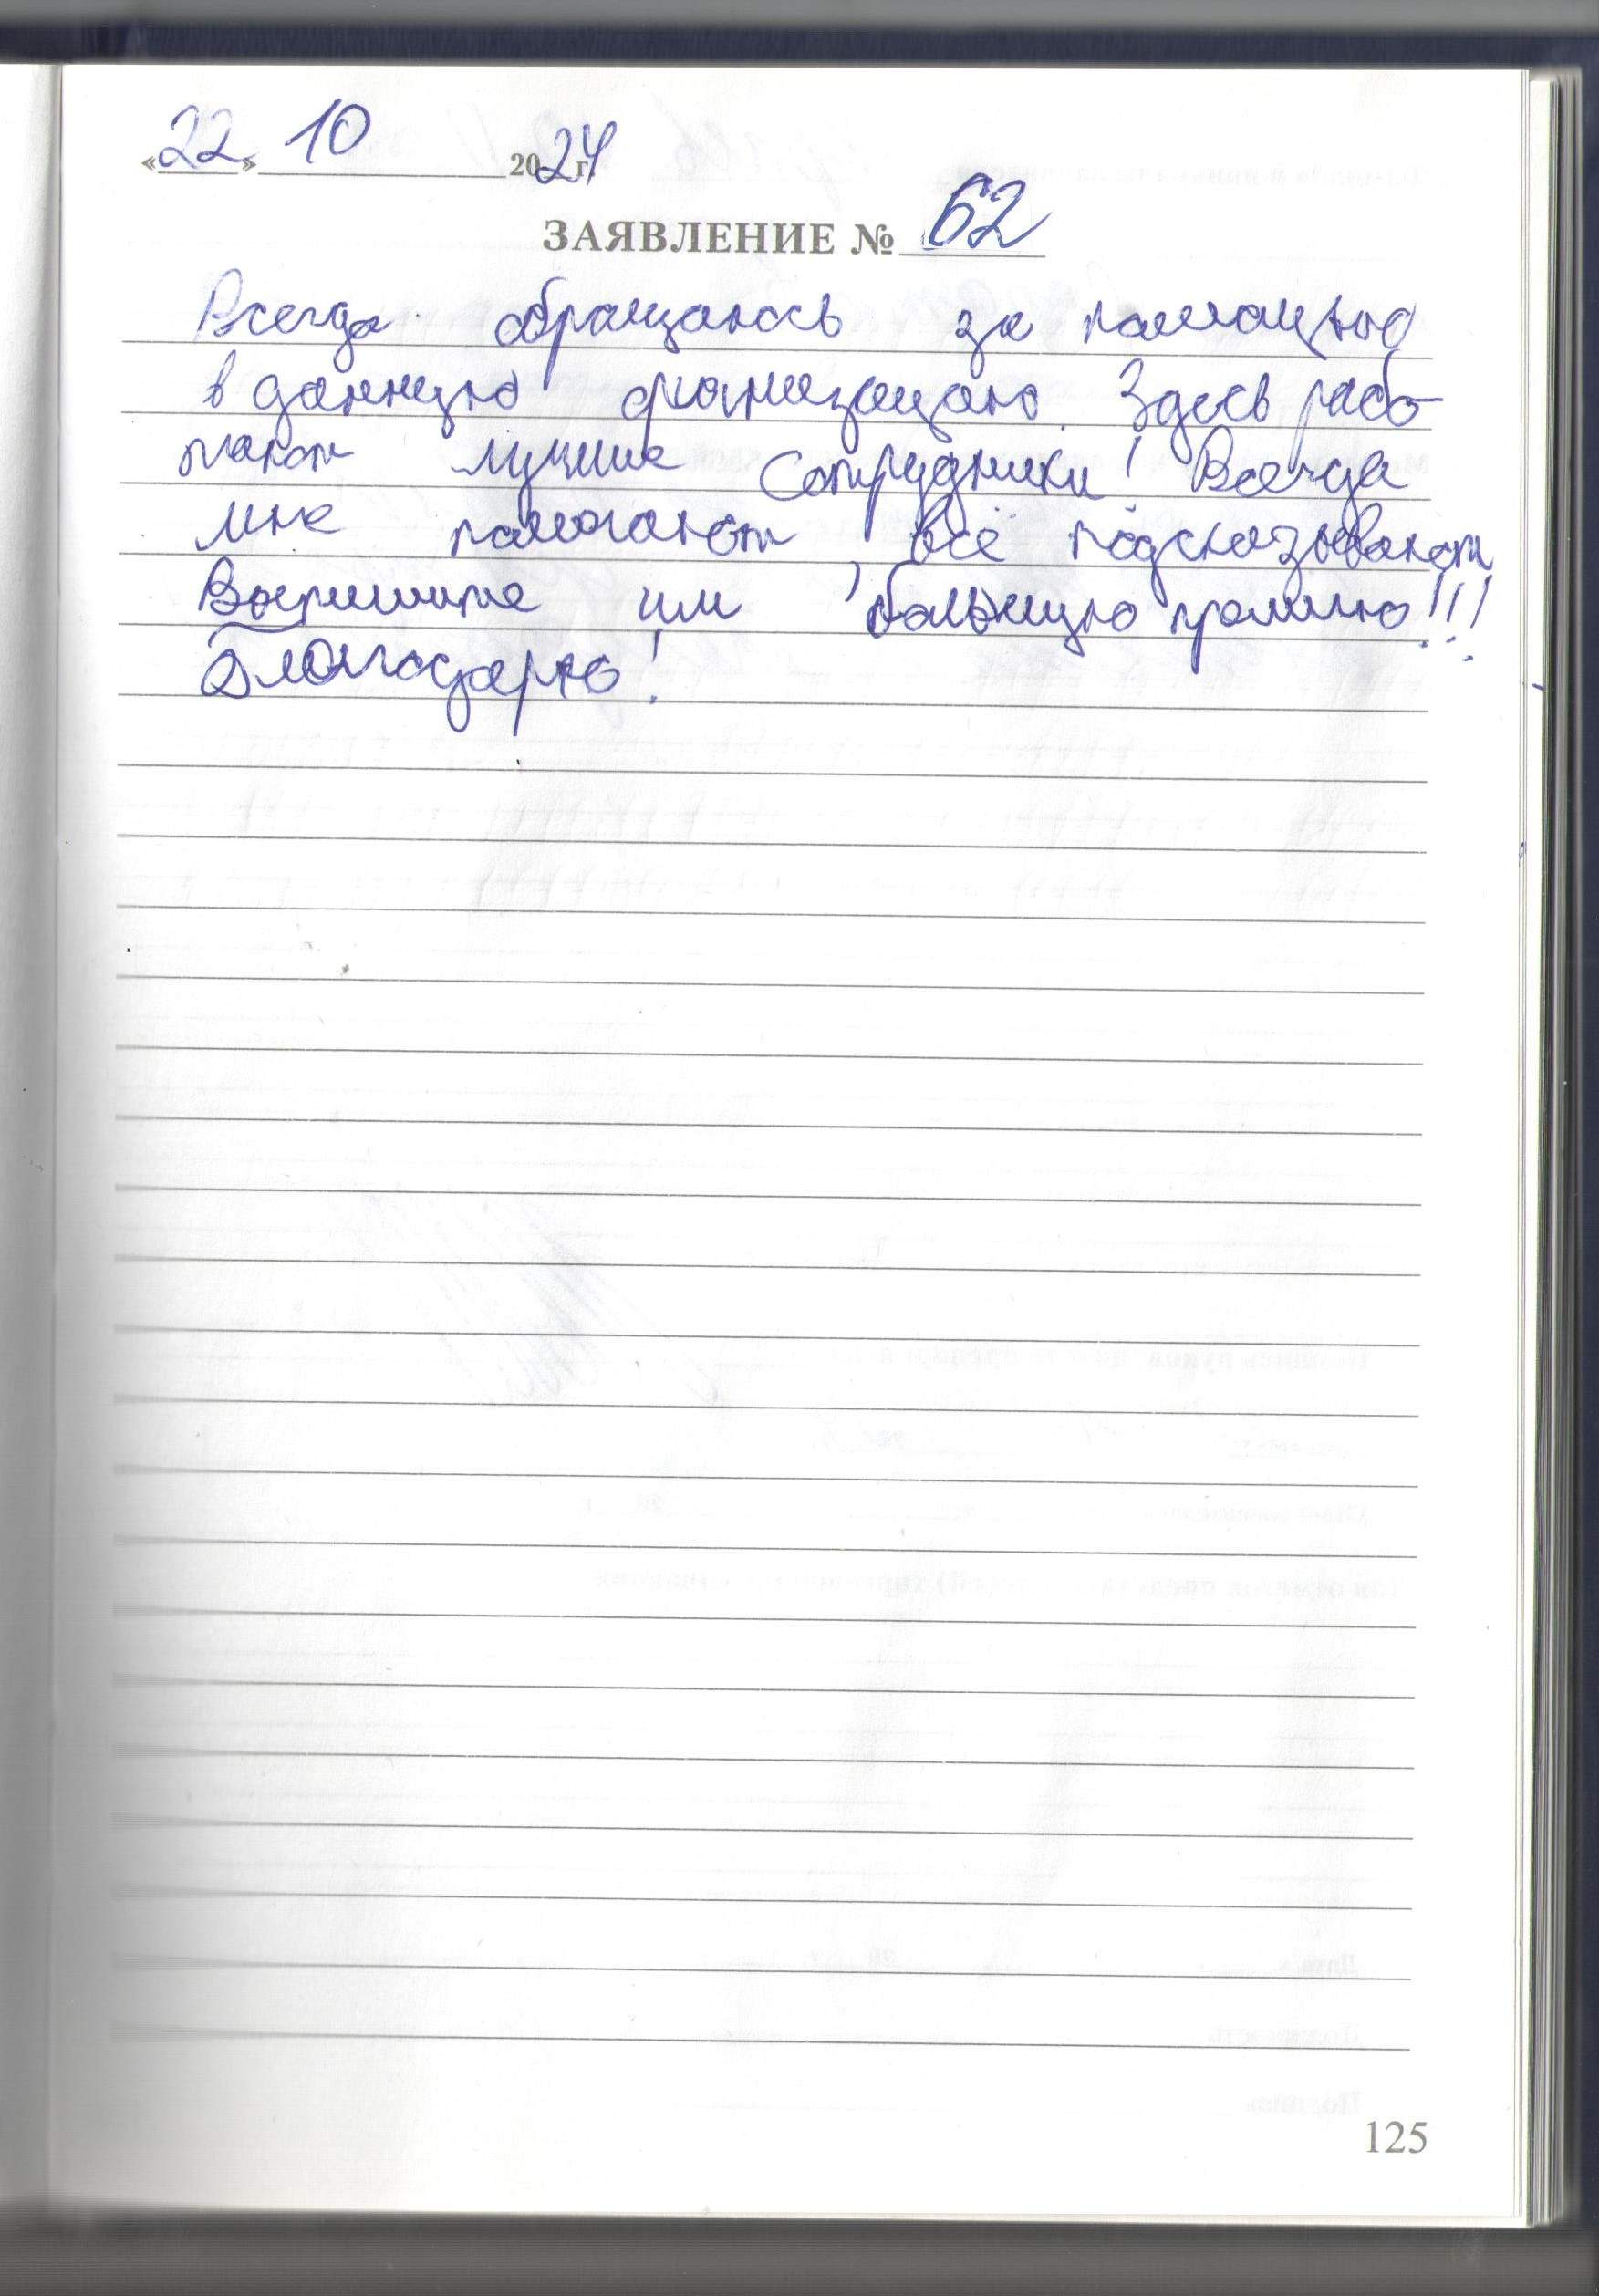 «22» 10 2024 г.
ЗАЯВЛЕНИЕ № 62
Всегда обращаюсь за помощью
в данную организацию. Здесь рабо
тают лучшие сотрудники! Всегда
мне помогают, всё подсказывают
Выпишите им большую премию!!!
Благодарю!
125